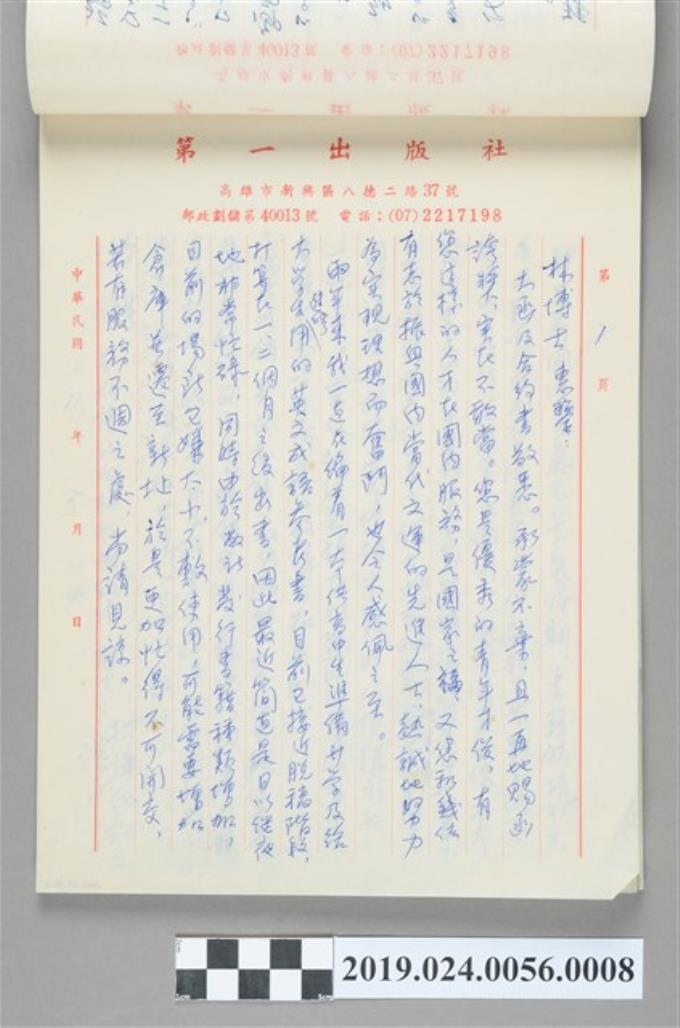 (07)2217198
第一出版社
高雄市新興區八德二路37號
郵政劃儲第40013號 電話:(07)2217198
第1頁
林博士惠鑒:
大函及合約書敬悉。承蒙不棄,且一再地賜函
誇獎,實在不敢當。您是優秀的青年才俊。有
您這樣的人才在國內服務,是國家之福,又您和錢
有志於振興國內當代文運的先進人士,熱誠地努力
為實現理想而奮鬥,也令人感佩之至。
兩年來我一直在編着一本供高中生準備升學及給
大學生用的英文成語參考書,目前已接近脫稿階段,
打算在一、二個月之後出書,因此最近簡直是日以繼夜
地非常忙碌,同時由於敝社發行書籍種類增加,
目前的場所已嫌太小,不敷使用,可能需要增加
倉庫並遷至新址,於是更加忙得不可開交,
若有服務不週之處,尚請見諒。
中華民國 年 月 日
2019.024.0056.0008